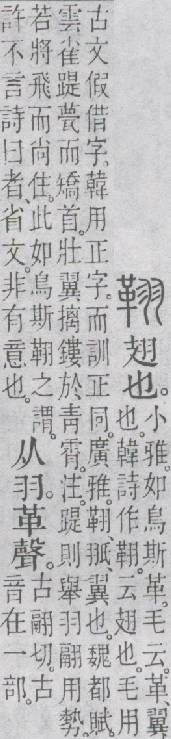 𦑜翅也。
小雅。如鳥斯革。毛云。革、翼
也。韓詩作𦑜。云翅也。毛用
古文假借字。韓用正字。而訓正同。廣雅。𦑜、翄、翼也。魏都賦。
雲雀踶甍而矯首。壯翼摛鏤於靑霄。注。踶則舉羽翮用勢。
若將飛而尚住。此如鳥斯𦑜之謂。
許不言詩曰者、省文。非有意也。
从羽。革聲。
古翮切。古
音在一部。